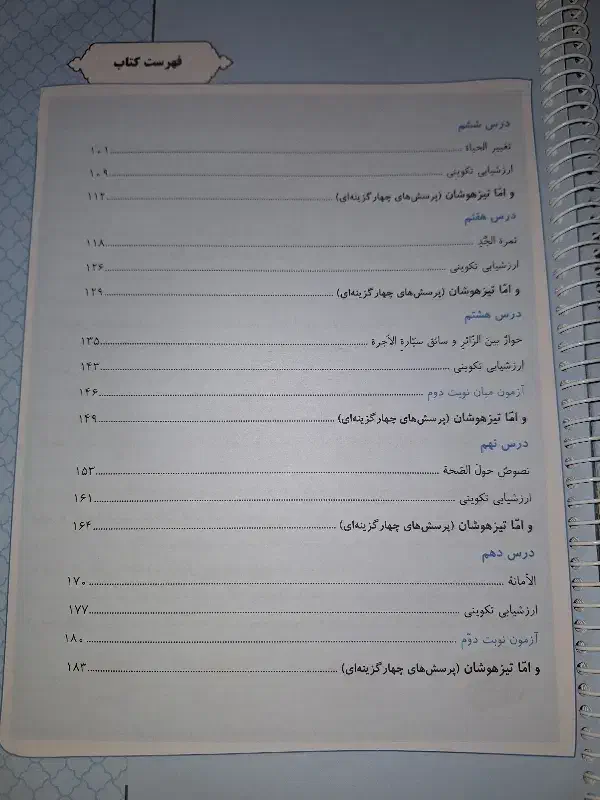 فهرست کتاب
درس ششم
تغییر الحیاة ۱۰۱
ارزشیابی تکوینی ۱۰۹
و امّا تیزهوشان (پرسش‌های چهارگزینه‌ای) ۱۱۲
درس هفتم
ثمرة الجُدِ ۱۱۸
ارزشیابی تکوینی ۱۲۶
و امّا تیزهوشان (پرسش‌های چهارگزینه‌ای) ۱۲۹
درس هشتم
حوارٌ بینَ الزّائرِ و سائق سیّارةِ الأجرة ۱۳۵
ارزشیابی تکوینی ۱۴۳
آزمون میان نوبت دوم ۱۴۶
و امّا تیزهوشان (پرسش‌های چهارگزینه‌ای) ۱۴۹
درس نهم
نصوصٌ حولَ الصّحة ۱۵۳
ارزشیابی تکوینی ۱۶۱
و امّا تیزهوشان (پرسش‌های چهارگزینه‌ای) ۱۶۴
درس دهم
الأمانة ۱۷۰
ارزشیابی تکوینی ۱۷۷
آزمون نوبت دوّم ۱۸۰
و امّا تیزهوشان (پرسش‌های چهارگزینه‌ای) ۱۸۳